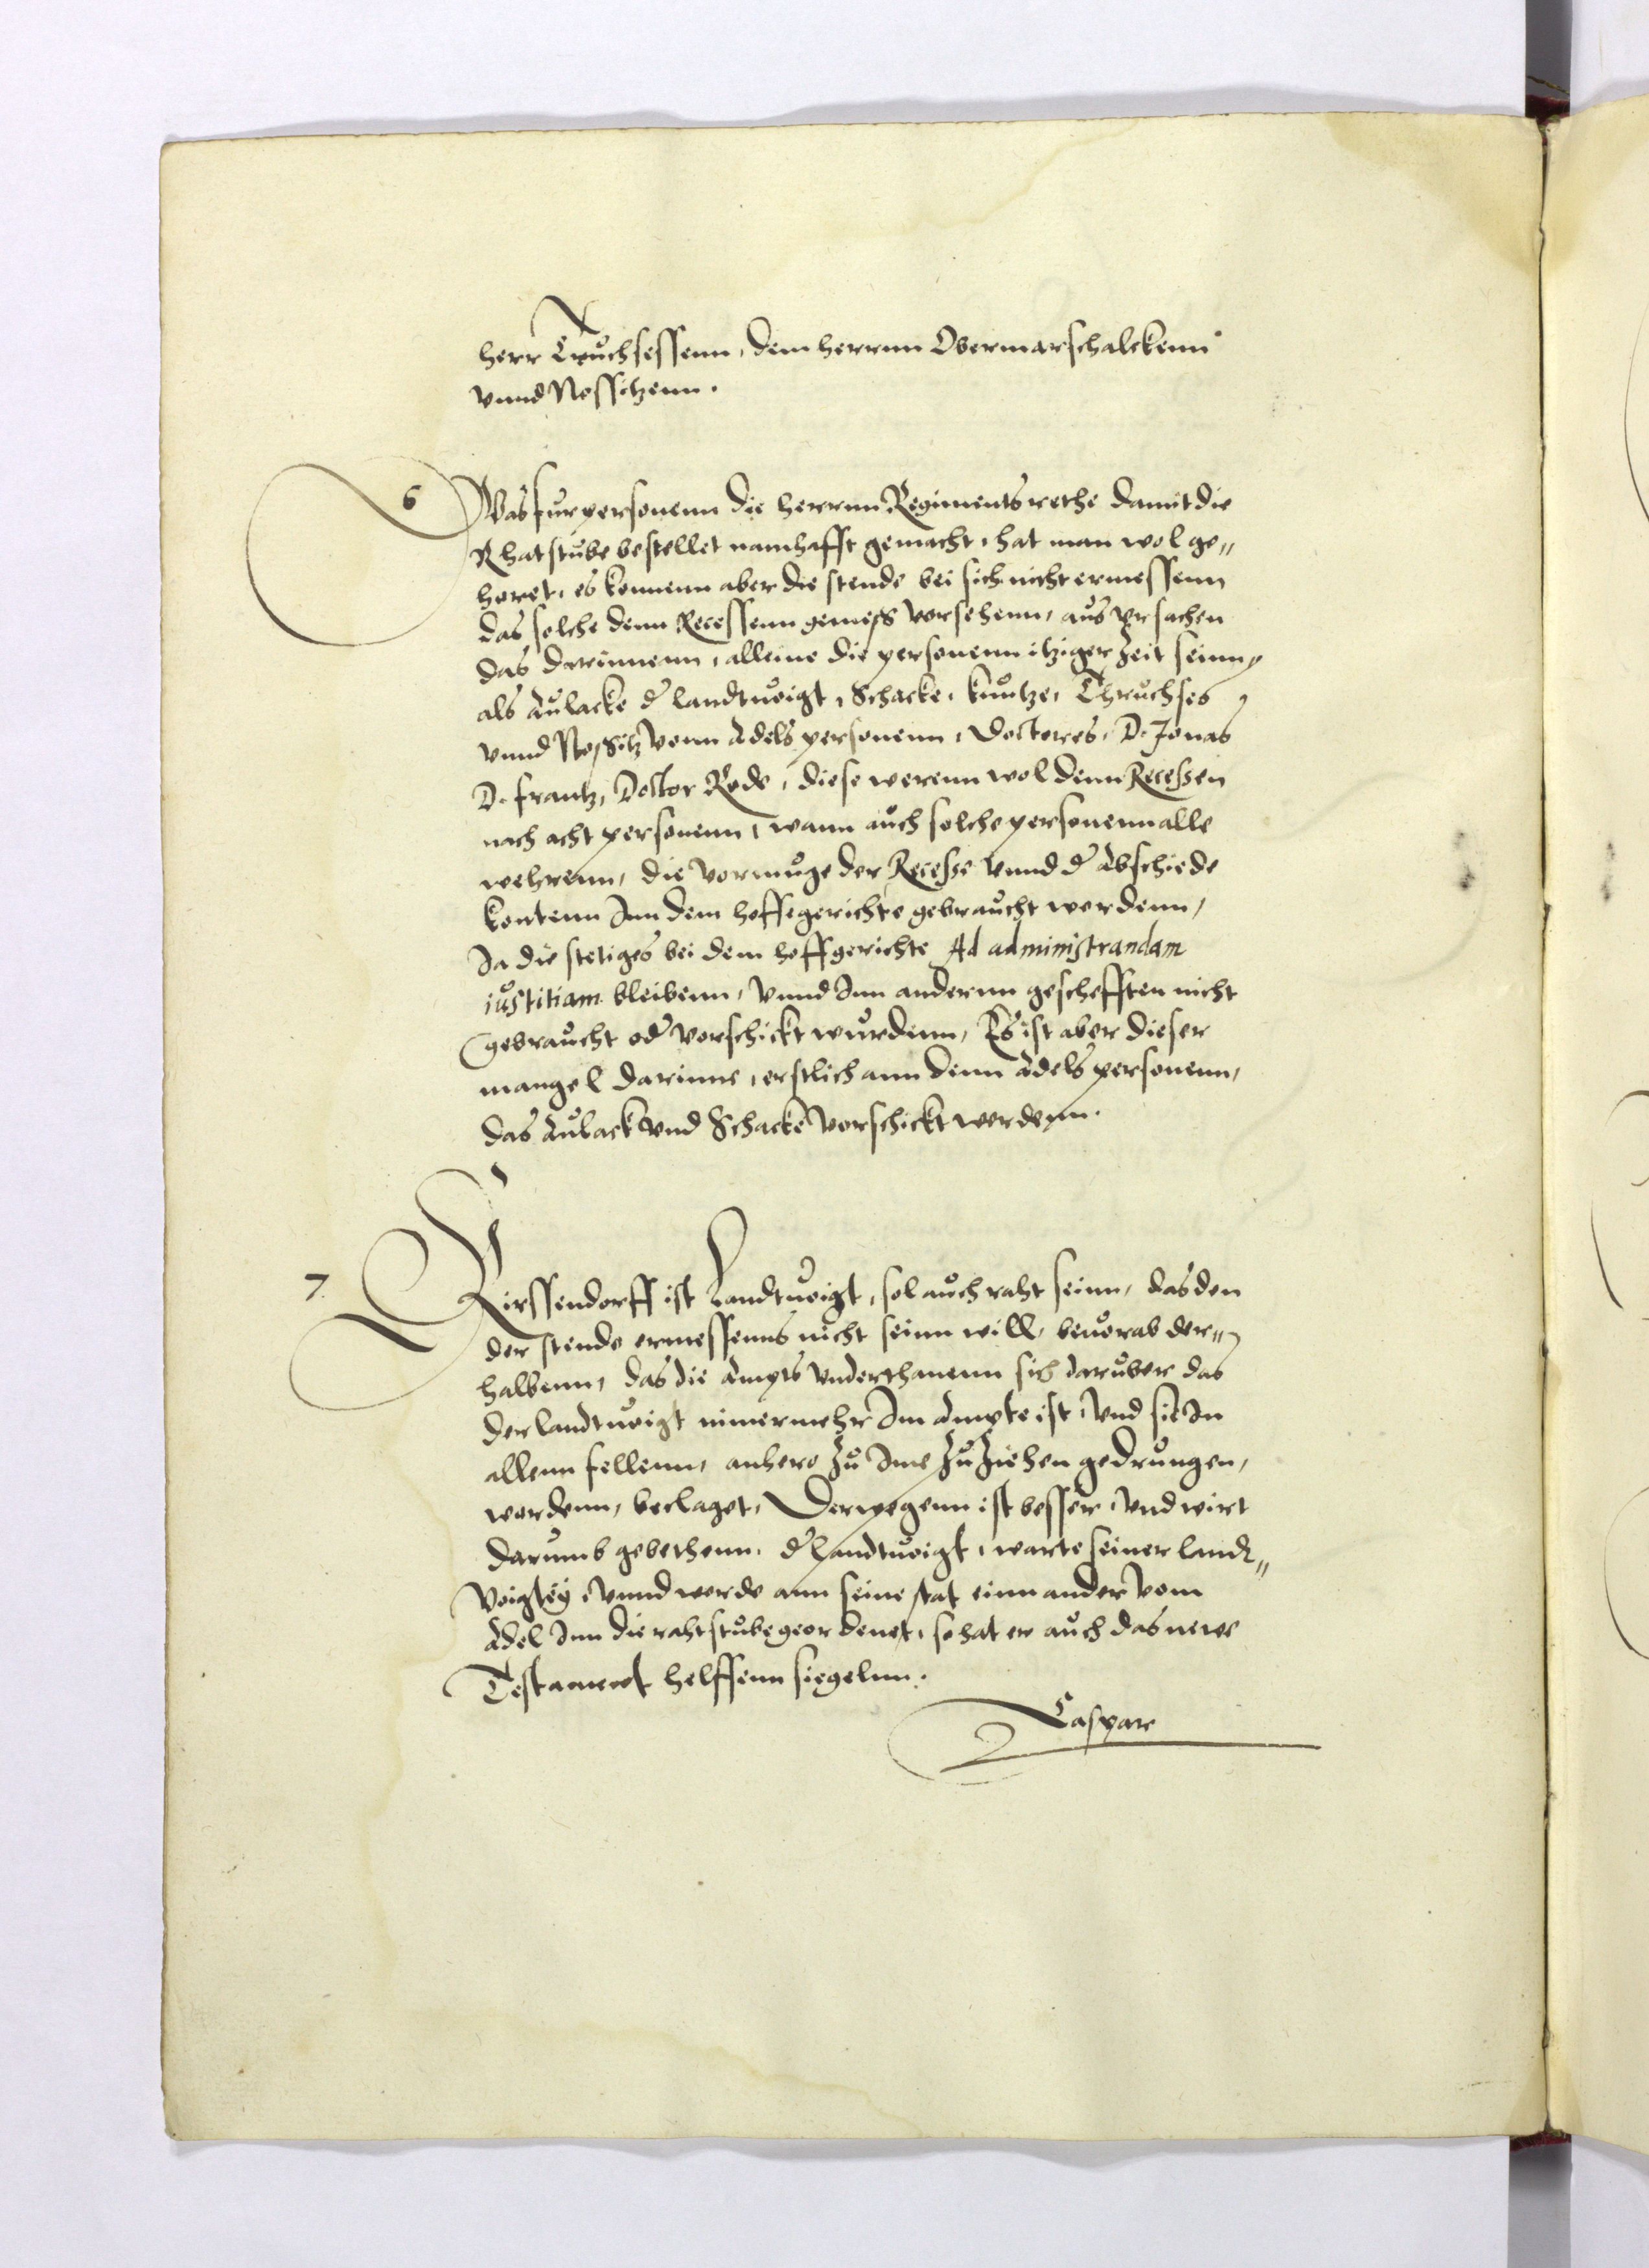 herr Truchsessenn, dem herrnn Obermarschalckenn
vnnd Nossitzenn.
6 Was fur personenn die herrnn Regiments rethe damit die
Rhatstube bestellet namhafft gemacht, hat man wol ge„
horet, es konnenn aber die stende bei sich nicht ermessenn
das solche denn Recessenn gemeß versehenn, aus vrsachen
das darinnenn, alleine die personenn itziger Zeit seinn,
als Aulacke d Landtuoigt, Schacke, Kuntze, Thruchses
vnnd Noßitz vonn Adels personenn, Doctores, D. Jonas
D. Frantz, Doctor Rode, diese werenn wol denn Recessen
nach acht personenn, wann auch solche personenn alle
wehrenn, die vormuge der Recesse vnnd d Abschiede
kontenn Inn dem hoffegerichte gebraucht werdenn,
Ja die stetiges bei dem hoffgerichte Ad administrandam
iustitiam bleibenn, vnnd Inn andernn geschefften nicht
gebraucht od vorschickt wurdenn, Es ist aber dieser
mangel darinne, erstlich ann denn Adels personenn,
das Aulack vnd Schacke vorschickt werdenn.
7. Kirssendorff ist Landtuoigt, sol auch raht seinn, das den
der stende ermessenns nicht seinn will, beuorab der„
halbenn, das die Ampts vnderthanenn sich daruber das
der landtuoigt nimermehr Im Ampte ist, vnd sie In
allenn fellenn, anhero Zu Ime Zu Ziehen gedrungen,
werdenn, beclaget, Derwegenn ist besser, vnd wirt
darumb gebethenn, d Landtuoigt, warte seiner landt„
voigtey, vnnd werde ann seine stat einn ander vom
Adel Inn die rahtstube geordenet, so hat er auch das newe
Testament helffenn siegelnn.
Caspar